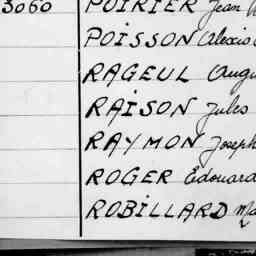 3060 POIRIER Jean
POISSON Alexis
RAGEUL
RAISON Jules
RAYMON Joseph
ROGER Edouard
ROBILLARD